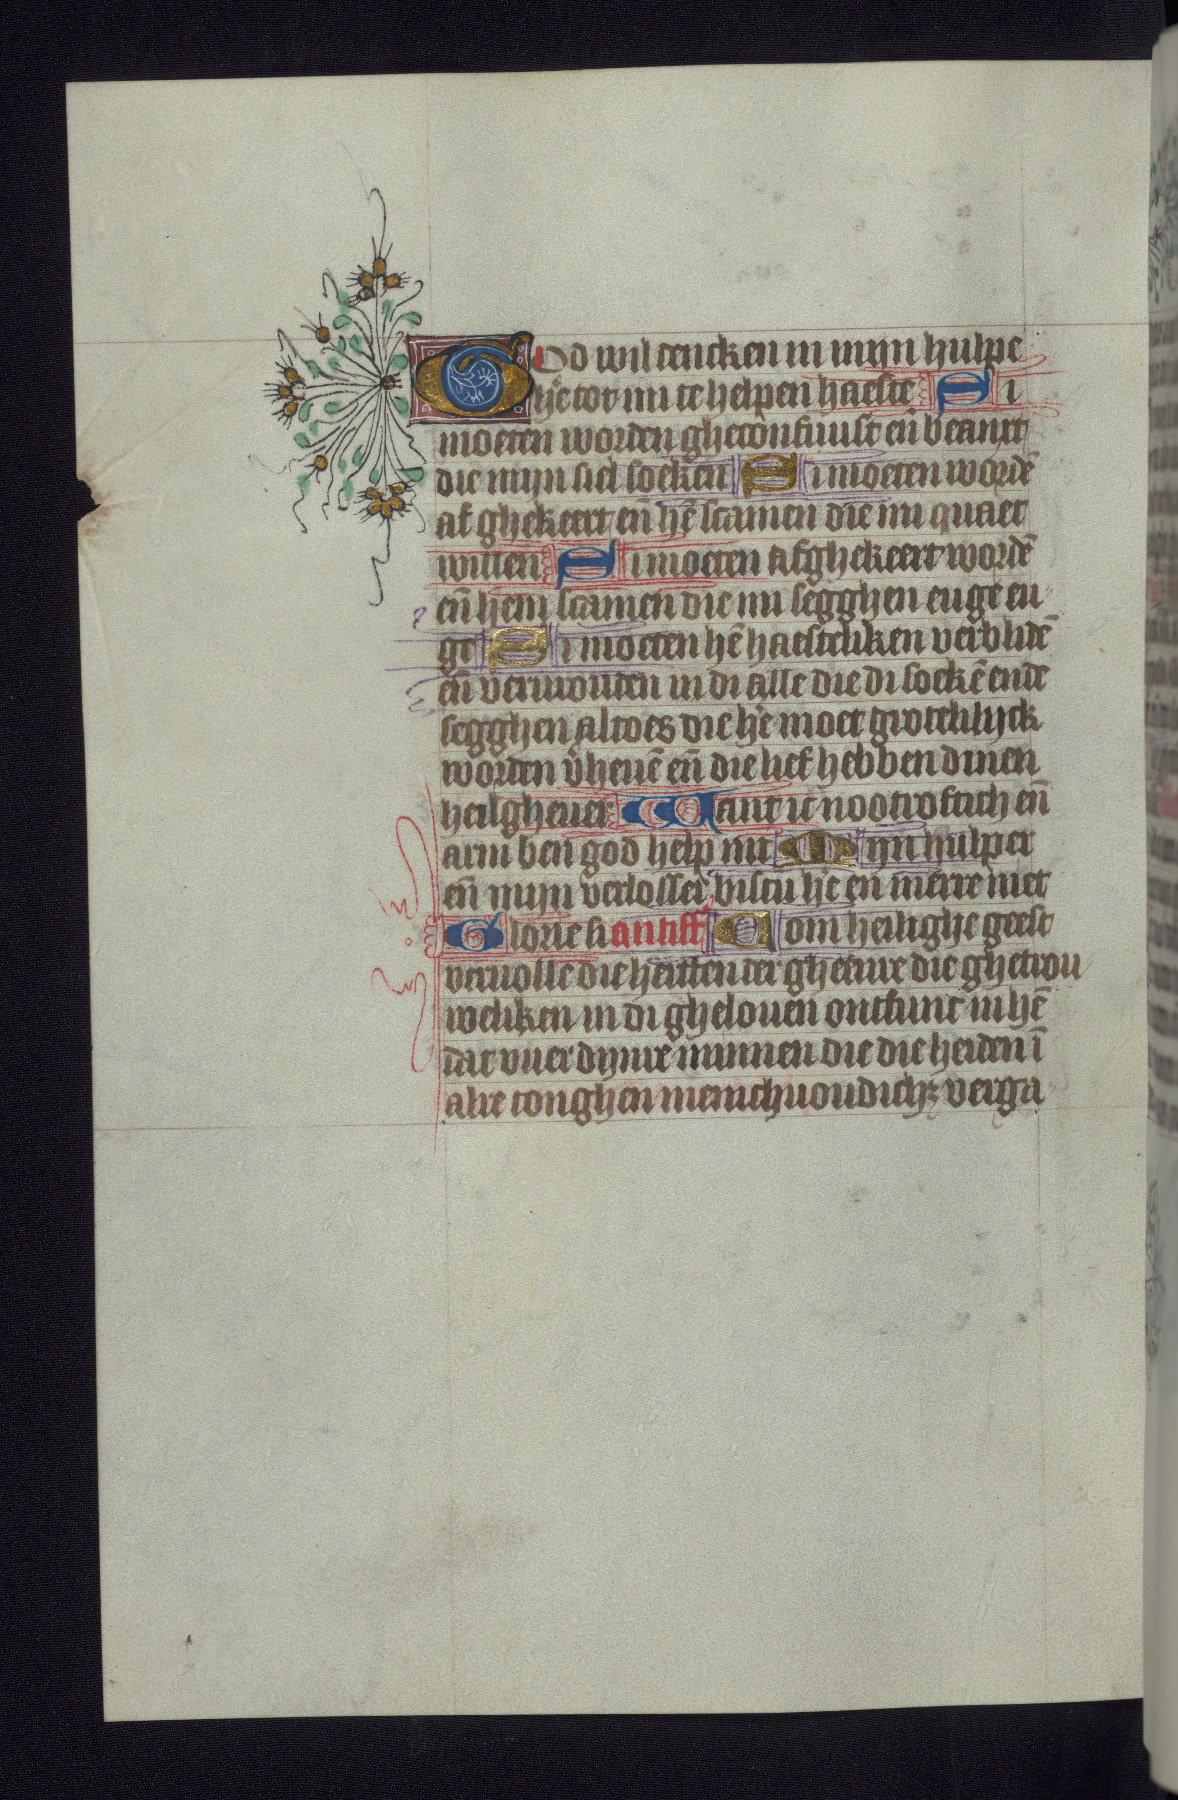 God wil dencken in mijn hulpe
he'e tot mi te helpen haeste Si
moeten worden gheconfuust eñ beanxt
die mijn siel soeken Si moeten wordē
af ghekeert eñ hē scamen die mi quaet
willen Si moeten afghekeert wordē
eñ hem scamen die mi segghen euge eu
ge Si moeten hē haesteliken verblidē
eñ vervrouden in di alle die di soekē ende
segghen altoes die he'e moet grotelijck
worden v'heuē eñ die lief hebben dinen
heilgheuer Want ic nootroftich eñ
arm ben god help mi Mijn hulper
eñ mijn verlosser bistu he'e en merre niet
Glorie si antiff Com heilighe geest
vervolle die herten der gheenre die ghetrou
weliken in di ghelouen ontfunt in hē
dat vuer dijnre minnen die die heiden ī
alre tonghen menichuoudichꝫ verga